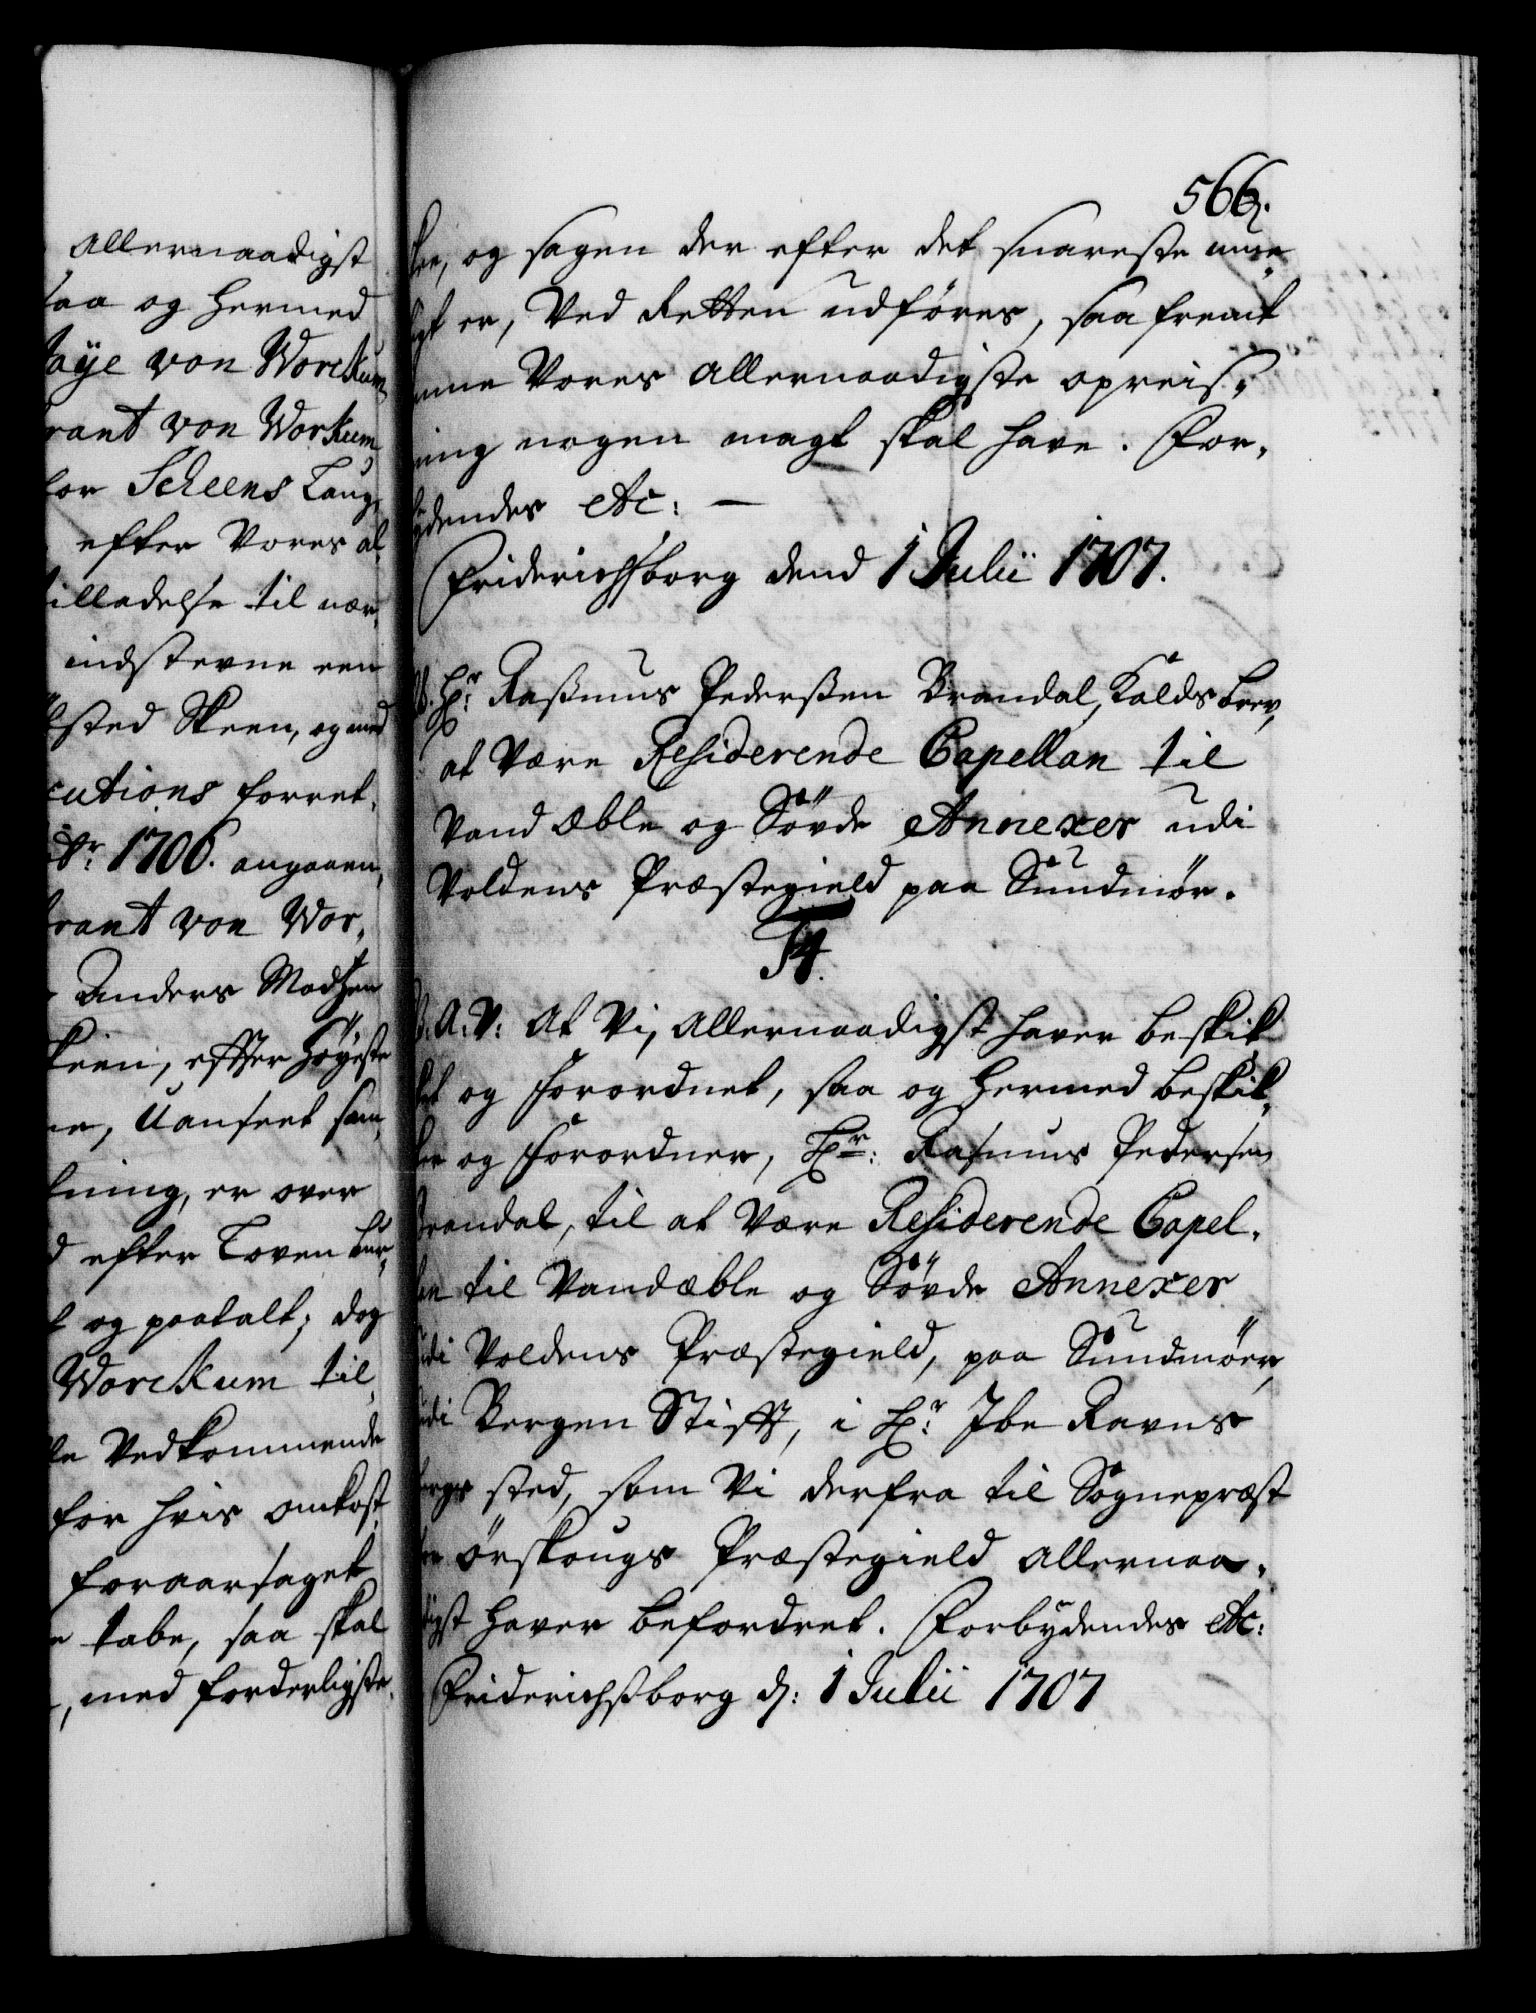 allernaadigst
saa og hermed
aÿe von Worckum
rant von Workum
for Scheens Laug,
efter Vores al
tilladelse til nær,
indstevne een
sted Skeen, og med
cutions forret,
1706. angaaen,
rant von Wor,
Anders Madsen
Skeen, effter Høÿeste
ne, Uanseet som,
ning, er over
d efter Loven
t og paatalt; dog
Worckum til,
le Vedkommende
for hvis omkost,
foraarsaget
tabe, saa skal
, med forderligste
566.
kee, og sagen der efter det snareste mue,
gt er, Ved Retten udføres, saa fremt
nne Vores allernaadigste opreis,
ning nogen magt skal have. For,
ydendes etc: —
Friderichsborg dend 1 Julii 1707.
Hr: Raßmus Pederßen Brandal, Kalds brev,
at Være Residerende Capellan til
Vand Æble og Søvde Annexer udi
Voldens Præstegield paa Sundmør.
F4.
V. A. V: At Vi, allernaadigst haver beskik
ket og forordnet, saa og hermed beskik,
ker og forordner, Hr: Rasmus Pedersen
Brandal, til at Være Residerende Capel,
lan til Vandæble og Søvde Annexer
udi Voldens Præstegield, paa Sundmøer,
udi Bergen Stifft, i Hr: Ibe Ravns
bergs sted, som Vi derfra til Sognepræst
for Ørskougs Præstegield allernaa,
digst haver befordret. Forbydendes etc:
Friderichsborg d: 1 Julii 1707